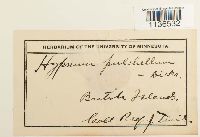 1136532
HERBARIUM OF THE UNIVERSITY OF MINNESOTA
Hypnum pulchellum
Dicks.
British Islands.
Coll.